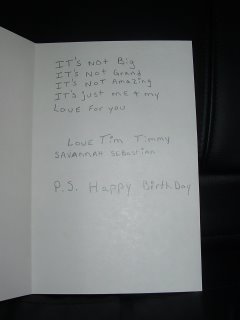 IT'S NOT Big
IT'S NOT Grand
IT'S NOT Amazing
IT'S JUST ME & MY
LOVE FOR YOU
LOVE TIM TIMMY
SAVANNAH SEBASTIAN
P.S. HAPPY BIRTHDAY